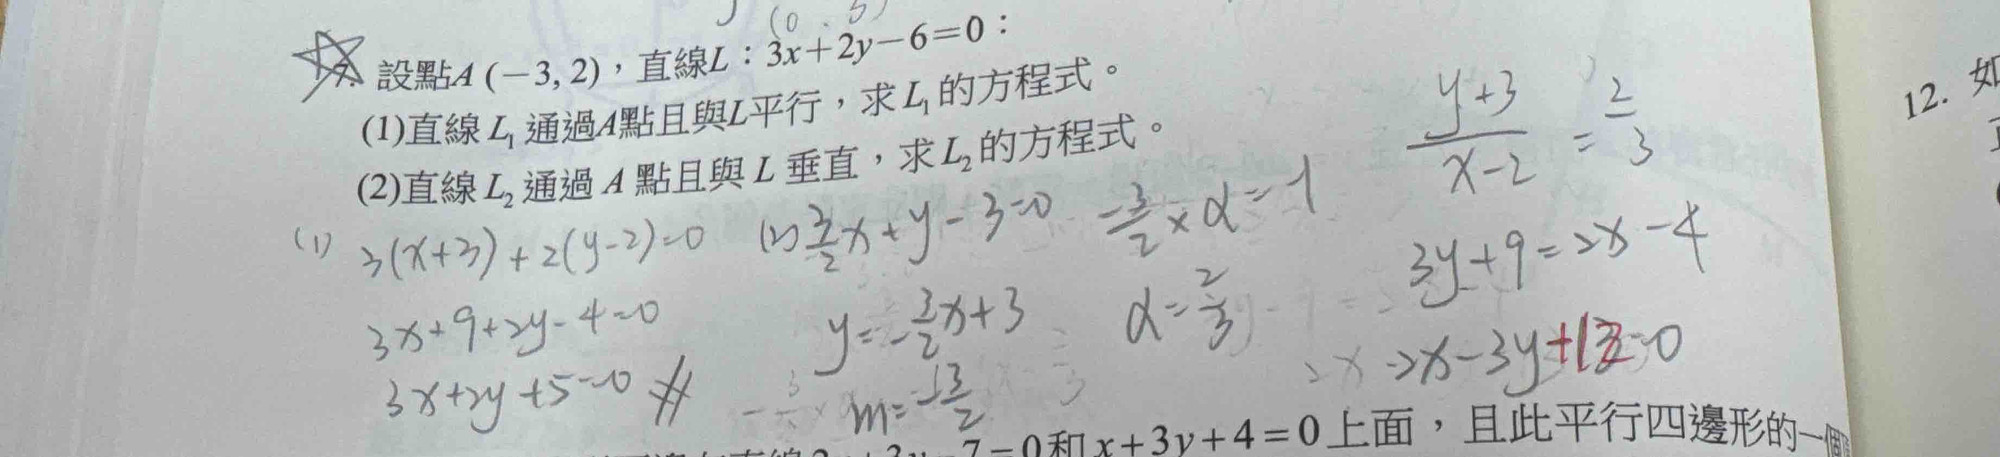 (0, 3)
7. 設點A (−3, 2)，直線L：3x+2y−6=0：
(1)直線 L₁ 通過A點且與L平行，求 L₁ 的方程式。
(2)直線 L₂ 通過 A 點且與 L 垂直，求 L₂ 的方程式。
(1) 3(x+3)+2(y-2)=0
3x+9+2y-4=0
3x+2y+5=0
(2) 3/2 x+y-3=0
y=-3/2 x+3
m=-3/2
-3/2 × α=-1
α=2/3
(y+3)/(x-2) = 2/3
3y+9=2x-4
2x-3y+13=0
7=0和 x+3y+4=0上面，且此平行四邊形的一個
12. 如